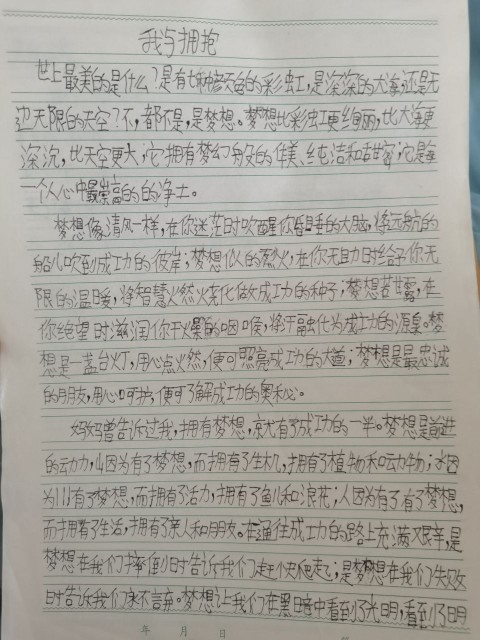 我与拥抱
世上最美的是什么?是有七种颜色的彩虹,是深深的大海,还是无
边无限的天空?不,都不是,是梦想。梦想比彩虹更绚丽,比大海更
深沉,比天空更大;它拥有梦幻般的华美、纯洁和甜蜜;它是每
一个人心中最崇高的的净土。
梦想像清风一样,在你迷茫时吹醒你昏睡的大脑,将远航的
船儿吹到成功的彼岸;梦想似人的烈火,在你无助时给予你无
限的温暖,将智慧火燃火花化做成功的种子;梦想若甘露,在
你绝望时滋润你干燥的咽喉,将干融化为成功的源泉。梦
想是一盏台灯,用心点火燃,便可照亮成功的大道;梦想是最忠诚
的朋友,用心呵护,便可了解成功的奥秘。
妈妈曾告诉过我,拥有梦想,就有了成功的一半。梦想是前进
的动力,山因为有了梦想,而拥有了生机,拥有了植物和动物;水因
为有了梦想,而拥有了活力,拥有了鱼儿和浪花;人因为有了有了梦想,
而拥有了生活,拥有了亲人和朋友。在通往成功的路上充满艰辛,是
梦想在我们摔倒时告诉我们赶快爬起;是梦想在我们失败
时告诉我们永不言弃。梦想让我们在黑暗中看到了光明,看到了明
年 月 日